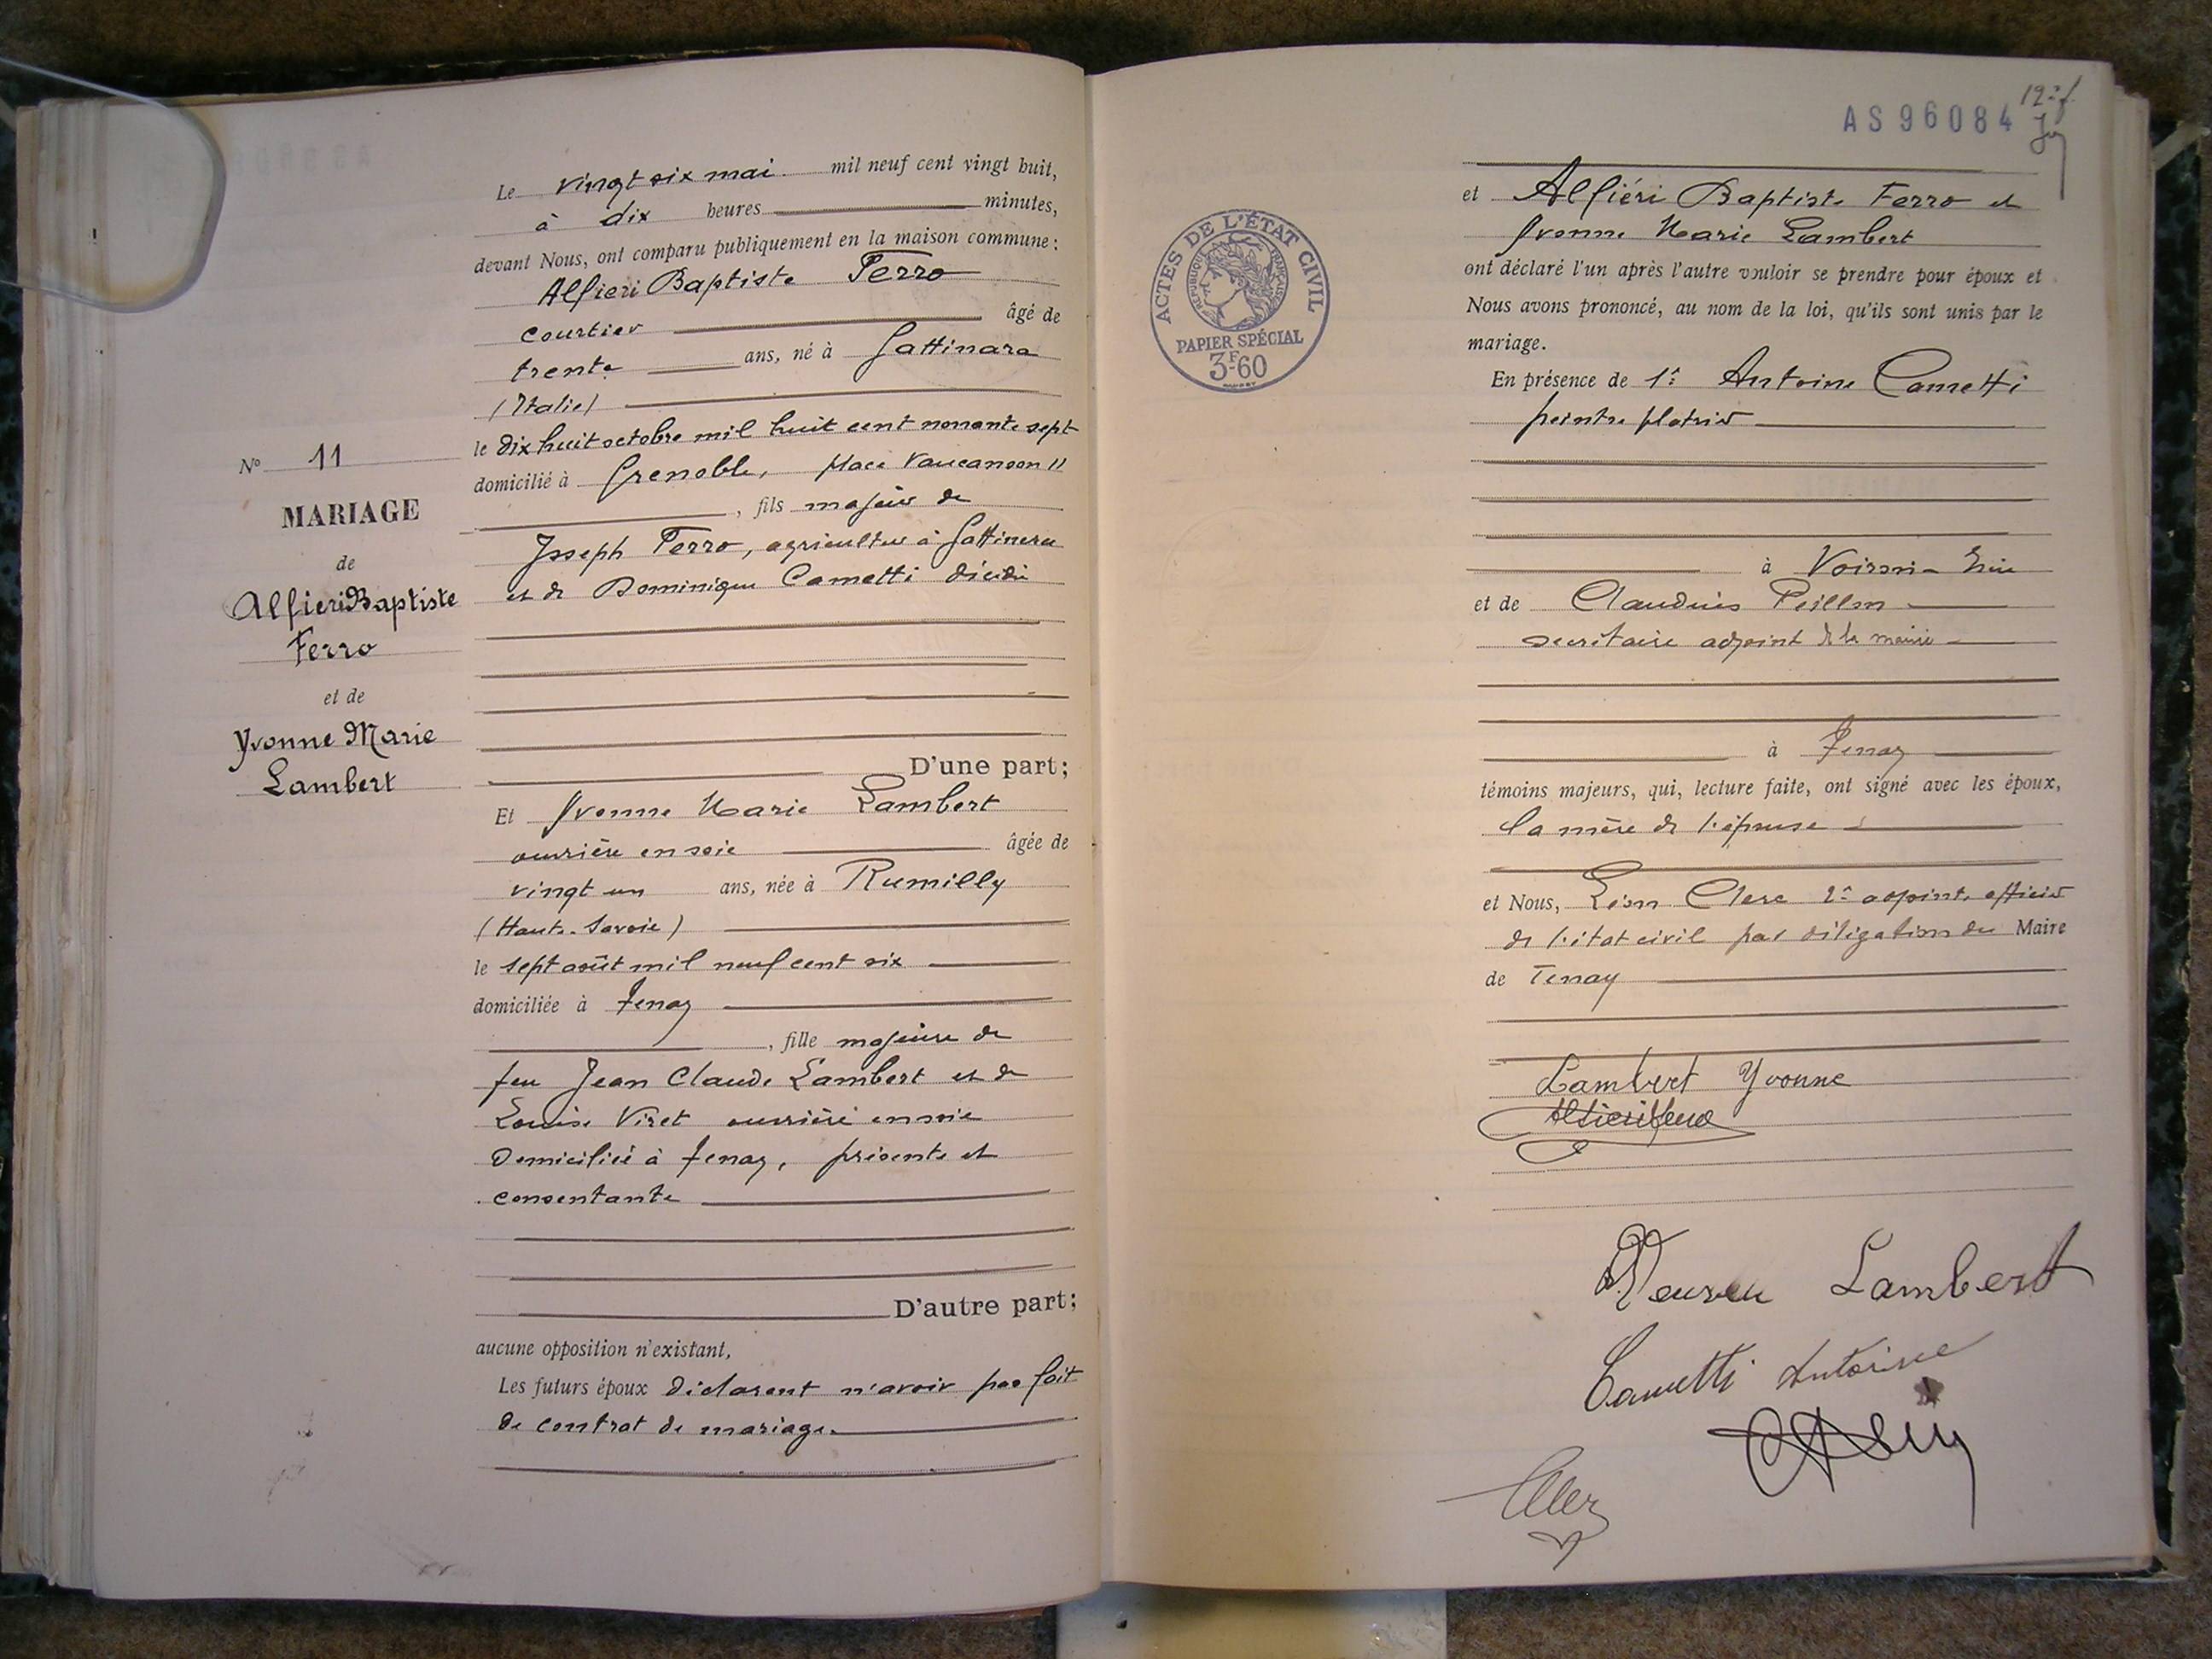 N° 11
MARIAGE
de
Alfieri Baptiste
Ferro
et de
Yvonne Marie
Lambert
Le vingt six mai mil neuf cent vingt huit,
à dix heures minutes,
devant Nous, ont comparu publiquement en la maison commune :
Alfieri Baptiste Ferro
courtier âgé de
trente ans, né à Gattinara
(Italie)
le dix huit octobre mil huit cent nonante sept
domicilié à Grenoble, place Vaucanson 11
, fils majeur de
Joseph Ferro, agriculteur à Gattinara
et de Dominique Cametti décédée
D'une part;
Et Yvonne Marie Lambert
ouvrière en soie âgée de
vingt un ans, née à Rumilly
(Haute-Savoie)
le sept août mil neuf cent six
domiciliée à Tenay
, fille majeure de
feu Jean Claude Lambert et de
Louise Viret ouvrière en soie
domiciliée à Tenay, présente et
consentante
D'autre part;
aucune opposition n'existant,
Les futurs époux déclarent n'avoir pas fait
de contrat de mariage.
AS96084
ACTES DE L'ÉTAT CIVIL
RÉPUBLIQUE FRANÇAISE
PAPIER SPÉCIAL
3F60
et Alfiéri Baptiste Ferro et
Yvonne Marie Lambert
ont déclaré l'un après l'autre vouloir se prendre pour époux et
Nous avons prononcé, au nom de la loi, qu'ils sont unis par le
mariage.
En présence de 1° Antoine Cametti
peintre platrier
à Voiron
et de Claudius Peillon
secrétaire adjoint de la mairie
à Tenay
témoins majeurs, qui, lecture faite, ont signé avec les époux,
la mère de l'épouse
et Nous, Léon Clerc 2e adjoint, officier
de l'état civil par délégation du Maire
de Tenay
Lambert Yvonne
Alfieri Ferro
Lambert
Cametti Antoine